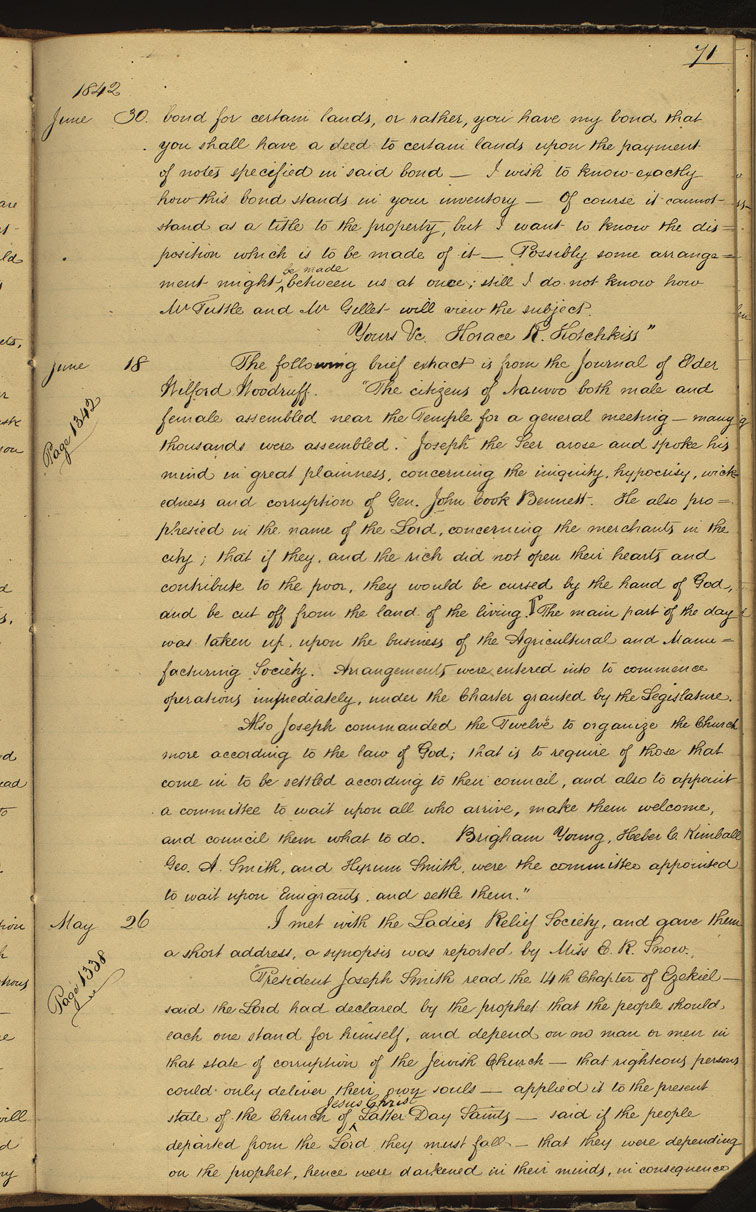 71
1842
June 30. bond for certain lands, or rather, you have my bond that
you shall have a deed to certain lands upon the payment
of notes specified in said bond — I wish to know exactly
how this bond stands in your inventory — Of course it cannot
stand as a title to the property, but I want to know the dis=
position which is to be made of it — Possibly some arrange=
be made
ment might ^ between us at once; still I do not know how
Mr Tuttle and Mr Gillet will view the subject.
Yours &c. Horace R. Hotchkiss"
June 18 The following brief extract is from the Journal of Elder
Wilford Woodruff. "The citizens of Nauvoo both male and
Page 1342
female assembled near the Temple for a general meeting — many
thousands were assembled. Joseph the Seer arose and spoke his
mind in great plainness, concerning the iniquity, hypocrisy, wick=
edness and corruption of Gen. John Cook Bennett. He also pro=
phesied in the name of the Lord, concerning the merchants in the
city; that if they, and the rich did not open their hearts and
contribute to the poor, they would be cursed by the hand of God,
and be cut off from the land of the living. The main part of the day
was taken up, upon the business of the Agricultural and Manu=
facturing Society. Arrangements were entered into to commence
operations immediately, under the Charter granted by the Legislature.
Also Joseph commanded the Twelve to organize the Church
more according to the law of God; that is to require of those that
come in to be settled according to their council, and also to appoint
a committee to wait upon all who arrive, make them welcome,
and council them what to do. Brigham Young, Heber C Kimball
Geo. A. Smith, and Hyrum Smith, were the committee appointed
to wait upon Emigrants, and settle them."
May 26 I met with the Ladies Relief Society, and gave them
a short address, a synopsis was reported by Miss E. R. Snow.
Page 1338
President Joseph Smith read the 14th Chapter of Ezekiel —
said the Lord had declared by the prophet that the people should
each one stand for himself, and depend on no man or men in
that state of corruption of the Jewish Church — that righteous persons
could only deliver their own souls — applied it to the present
Jesus Christ
state of the Church of ^ Latter Day Saints — said if the people
departed from the Lord they must fall — that they were depending
on the prophet, hence were darkened in their minds, in consequence